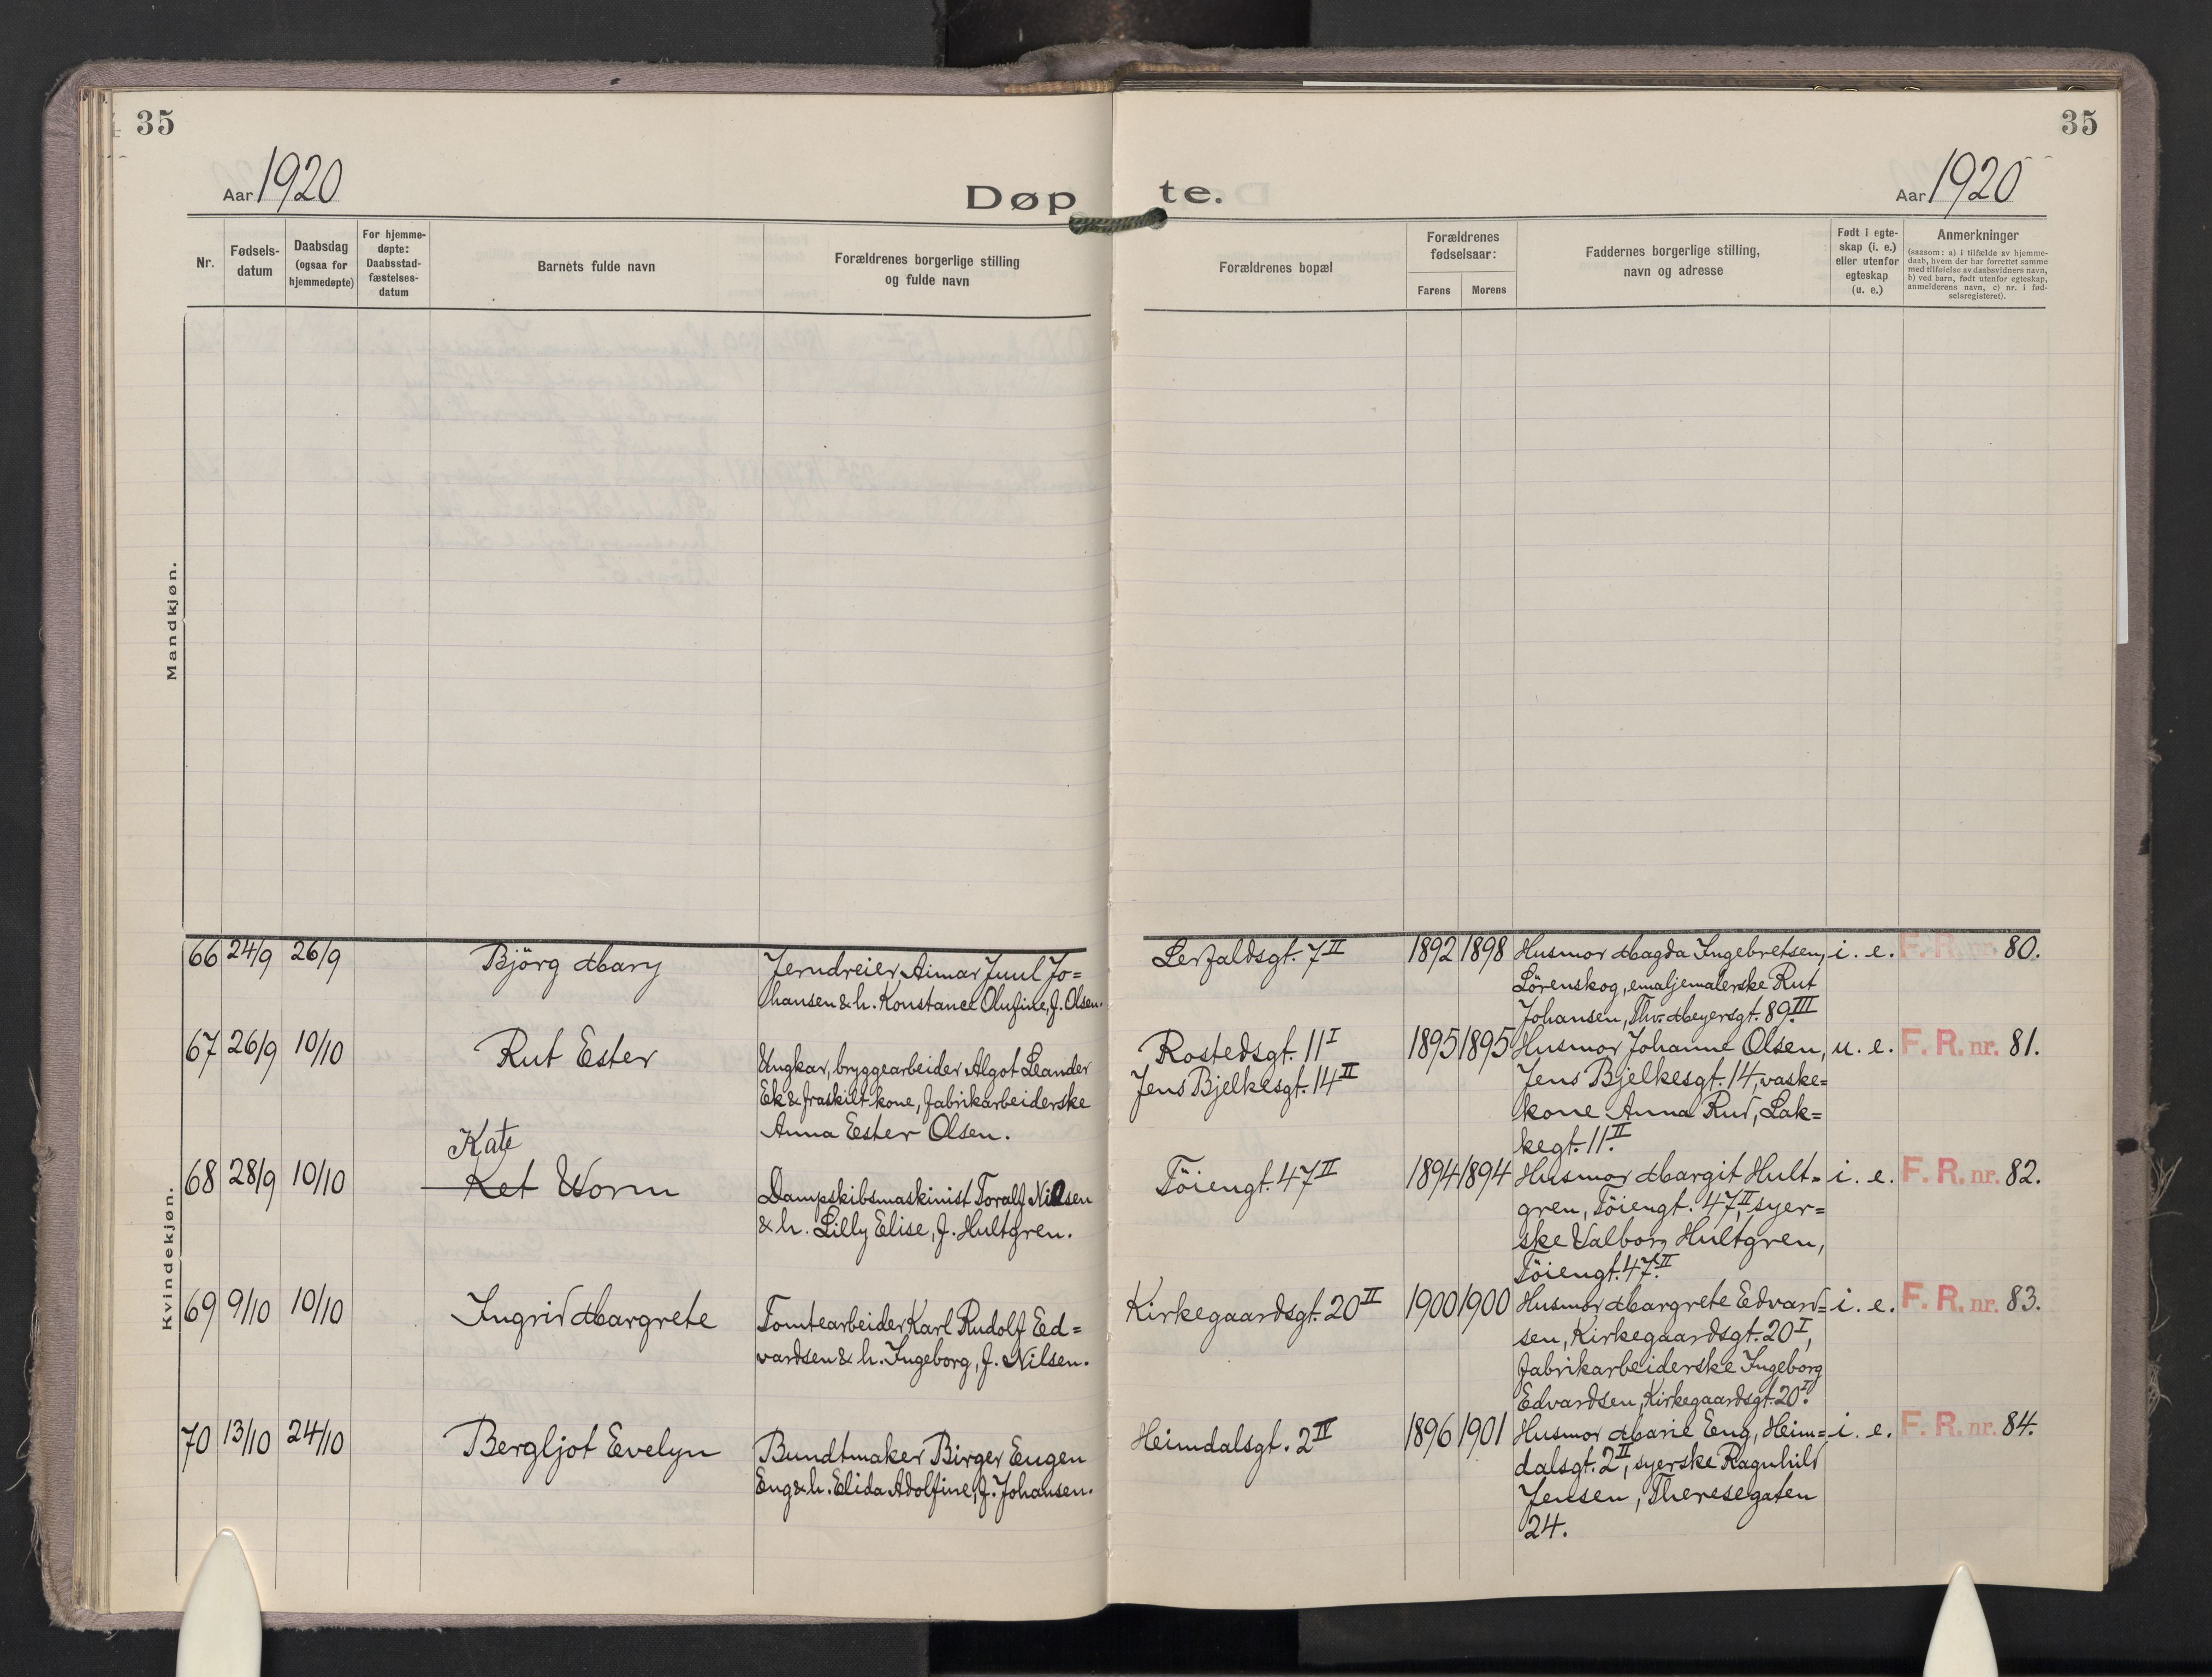 35
35
Aar 1920
Aar 1920
Døpte.
Nr.
Fødsels-
datum
Daabsdag
(ogsaa for
hjemmedøpte)
For hjemme-
døpte:
Daabsstad-
fæstelses-
datum
Barnets fulde navn
Forældrenes borgerlige stilling
og fulde navn
Forældrenes bopæl
Forældrenes
fødselsaar:
Farens
Morens
Faddernes borgerlige stilling,
navn og adresse
Født i egte-
skap (i. e.)
eller utenfor
egteskap
(u. e.)
Anmerkninger
(saasom: a) i tilfælde av hjemme-
daab, hvem der har forrettet samme
med tilføielse av daabsvidners navn,
b) ved barn, født utenfor egteskap,
anmelderens navn, c) nr. i fød-
selsregisteret).
Mandkjøn.
Kvindekjøn.
66 24/9 26/9
Björg Mary
Jerndreier Aimar Juul Jo=
hansen & h. Konstance Olufine, f. Olsen.
Lerfaldsgt. 7 II
1892 1898
Husmor Magda Ingebretsen,
Lörenskog, emaljemalerske Rut
Johansen, Thv. Meyersgt. 89 III
i. e.
F. R. nr. 80.
67 26/9 10/10
Rut Ester
Ungkar, bryggearbeider Algot Leander
Ek & fraskilt kone, fabrikarbeiderske
Anna Ester Olsen.
Rostedsgt. 11 I
Jens Bjelkesgt. 14 II
1895 1895
Husmor Johanne Olsen,
Jens Bjelkesgt. 14, vaske=
kone Anna Rud, Lak=
kegt. 11 II
u. e.
F. R. nr. 81.
68 28/9 10/10
Kate
Ket Worm
Dampskibsmaskinist Toralf Nilsen
& h. Lilly Elise, f. Hultgren.
Töiengt. 47 II
1894 1894
Husmor Margit Hult=
gren, Töiengt. 47 II, syer=
ske Valborg Hultgren,
Töiengt. 47 II
i. e.
F. R. nr. 82.
69 9/10 10/10
Ingrid Margrete
Tomtearbeider Karl Rudolf Ed=
vardsen & h. Ingeborg, f. Nilsen.
Kirkegaardsgt. 20 II
1900 1900
Husmor Margrete Edvard=
sen, Kirkegaardsgt. 20 I,
fabrikarbeiderske Ingeborg
Edvardsen, Kirkegaardsgt. 20 I.
i. e.
F. R. nr. 83.
70 13/10 24/10
Bergljot Evelyn
Bundtmaker Birger Eugen
Eng & h. Elida Adolfine, f. Johansen.
Heimdalsgt. 2 II
1896 1901
Husmor Marie Eng, Heim=
dalsgt. 2 II, syerske Ragnhild
Jensen, Theresegaten
24.
i. e.
F. R. nr. 84.